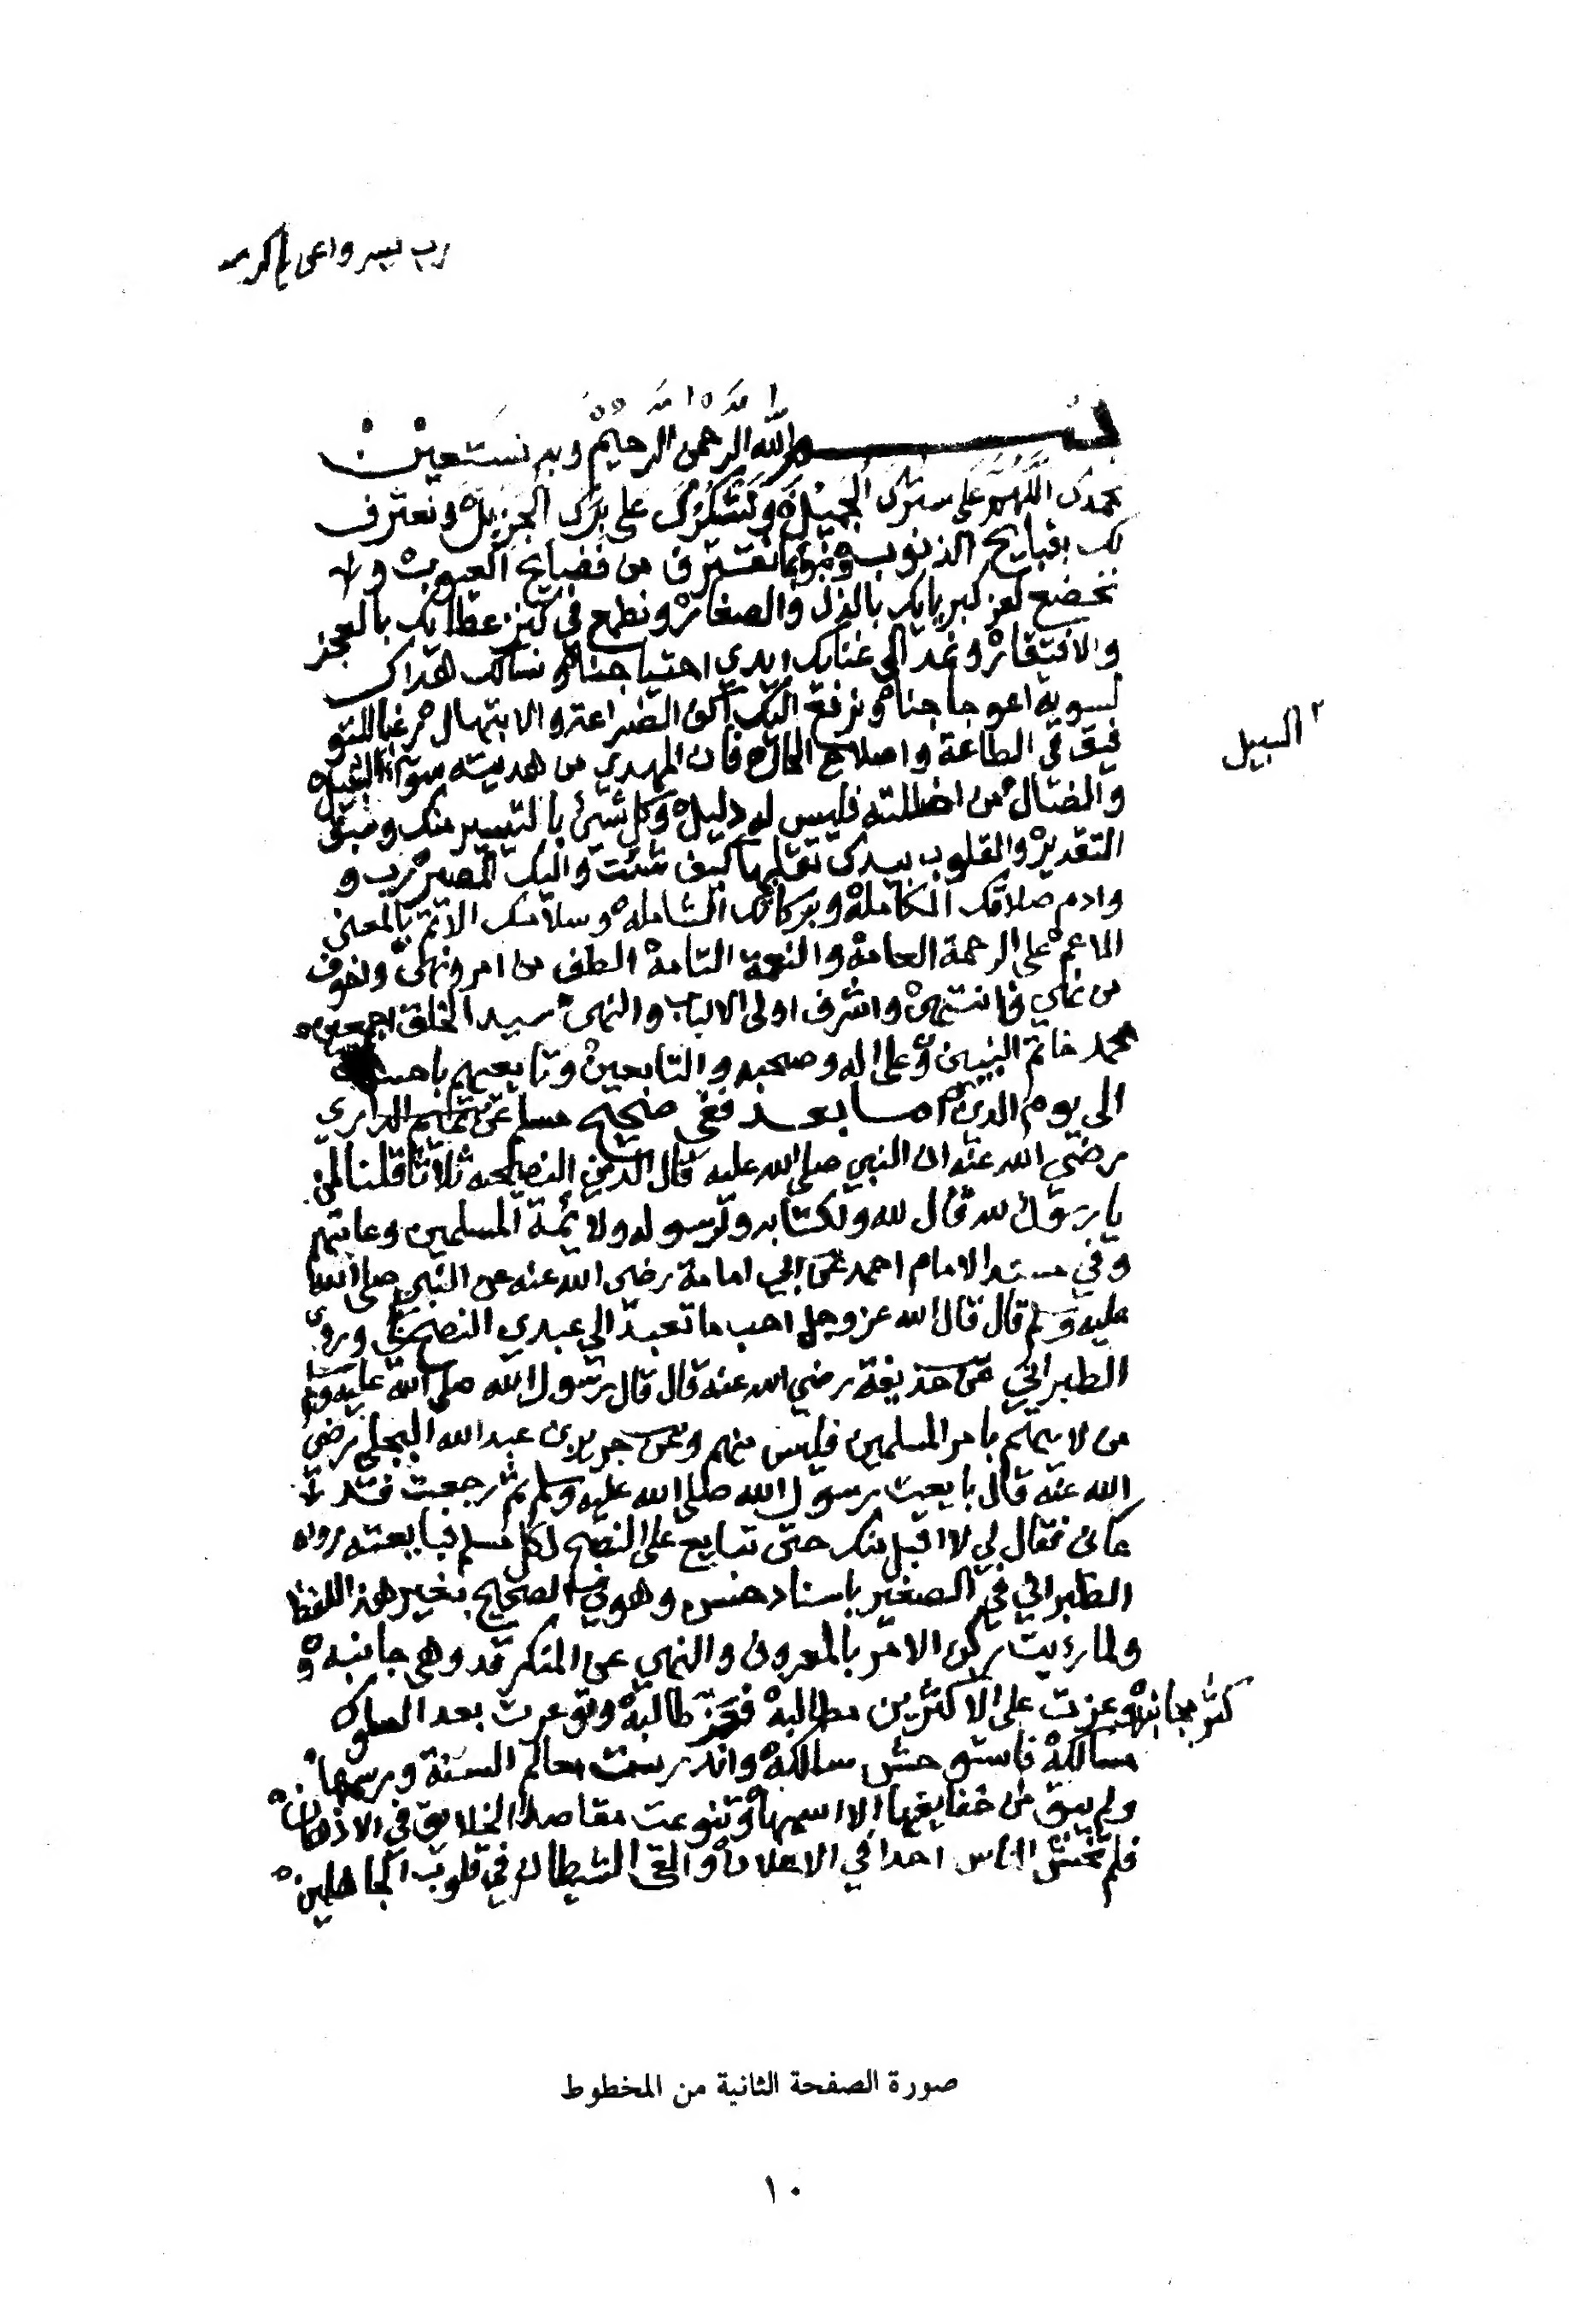 رب يسر واعن يا كريم
بسم الله الرحمن الرحيم وبه نستعين
نحمدك اللهم على سترك الجميل ونشكرك على برك الجزيل ونعترف
لك بقبايح الذنوب وبما نقترف من فضايح العيوب و
نخضع لعز كبريايك بالذل والصغار ونطمع في كنز عطايك بالعجز
والافتقار ونمد الى غنايك ايدي احتياجنا ونسالك هداك
لتسوية اعوجاجنا ونرفع اليك اكف الضراعة والابتهال رغبا للتو
فيق في الطاعة واصلاح الحال فان المهدي من هديته سواء السبيل
السبيل
والضال من اضللته فليس له دليل وكل شيئ بالتيسير منك وسبق
التقدير والقلوب بيدك تقلبها كيف شئت واليك المصير رب و
وادم صلاتك الكاملة وبركاتك الشاملة وسلامك الاتم بالمعنى
الاعم على الرحمة العامة والنعمة التامة الطف من امر ونهى واخوف
من نهي فانتهى واشرف اولى الالباب والنهى سيد الخلق اجمعين
محمد خاتم النبيين وعلى اله وصحبه والتابعين وتابعيهم باحسان
الى يوم الدين اما بعد ففي صحيح مسلم عن تميم الداري
رضي الله عنه ان النبي صلى الله عليه قال الدين النصيحه ثلاثا قلنا لمن
يا رسول الله قال لله ولكتابه ولرسوله ولائمة المسلمين وعامتهم
وفي مسند الامام احمد عن ابي امامة رضي الله عنه عن النبي صلى الله
عليه وسلم قال قال الله عز وجل احب ما تعبد الي عبدي النصح لي وروى
الطبراني عن حذيفة رضي الله عنه قال قال رسول الله صلى الله عليه وسلم
من لا يهتم بامر المسلمين فليس منهم وعن جرير بن عبد الله البجلي رضي
الله عنه قال بايعت رسول الله صلى الله عليه وسلم ثم رجعت فد
عاني فقال لي لا اقبل منك حتى تبايع على النصح لكل مسلم فبايعته رواه
الطبراني في الصغير باسناد حسن وهو في الصحيح بغير هذا اللفظ
ولما رءيت ركن الامر بالمعروف والنهي عن المنكر قد وهى جانبه و
كثر مجانبه وعزت على الاكثرين مطالبة فعز طالبة وتوعرت بعد السلوك
مسالكة فاستوحش سالكة واندرست معالم السنة ورسمها
ولم يبق من حقايقها الا اسمها وتنوعت مقاصد الخلايق في الاذهان
فلم تخش الناس احدا في الاعلان والقى الشيطان في قلوب الجاهلين
صورة الصفحة الثانية من المخطوط
١٠